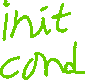 init
cond